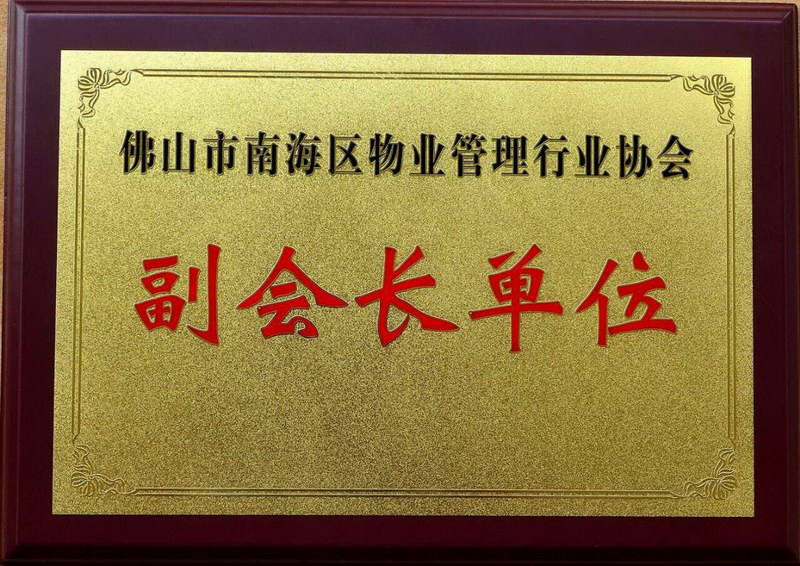 佛山市南海区物业管理行业协会
副会长单位